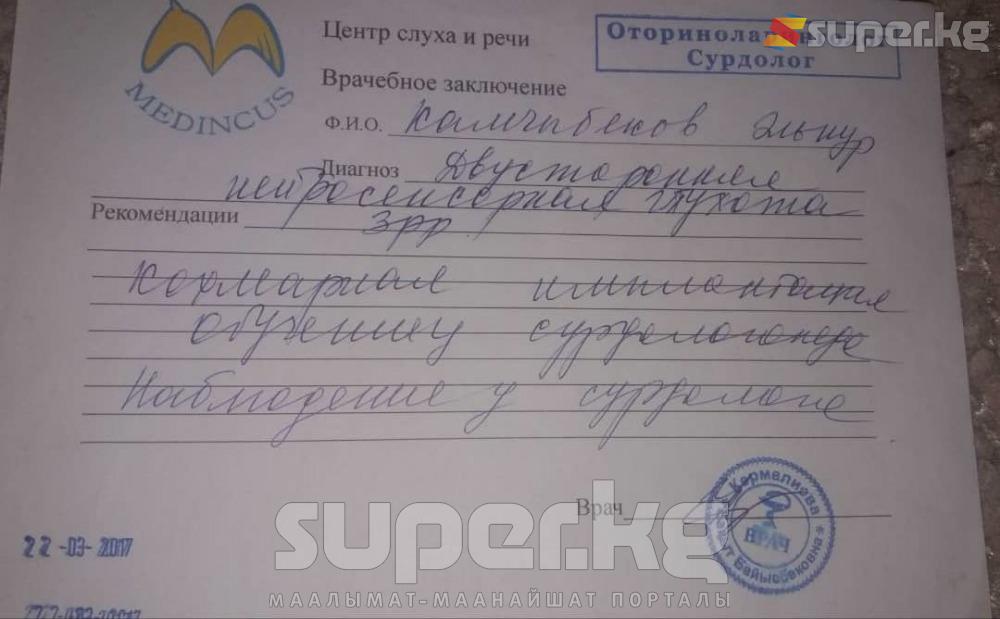 MEDINCUS
Центр слуха и речи
Оториноларинголог
Сурдолог
super.kg
Врачебное заключение
Ф.И.О. Камчыбеков Эльнур
Диагноз Двусторонняя
нейросенсорная глухота
Рекомендации ЗРР
Кохлеарная имплантация
обучение у сурдологопеда
Наблюдение у сурдолога
Врач
Кермалиева
Байысбековна
ВРАЧ
22-03-2017
super.kg
МААЛЫМАТ-МААНАЙШАТ ПОРТАЛЫ